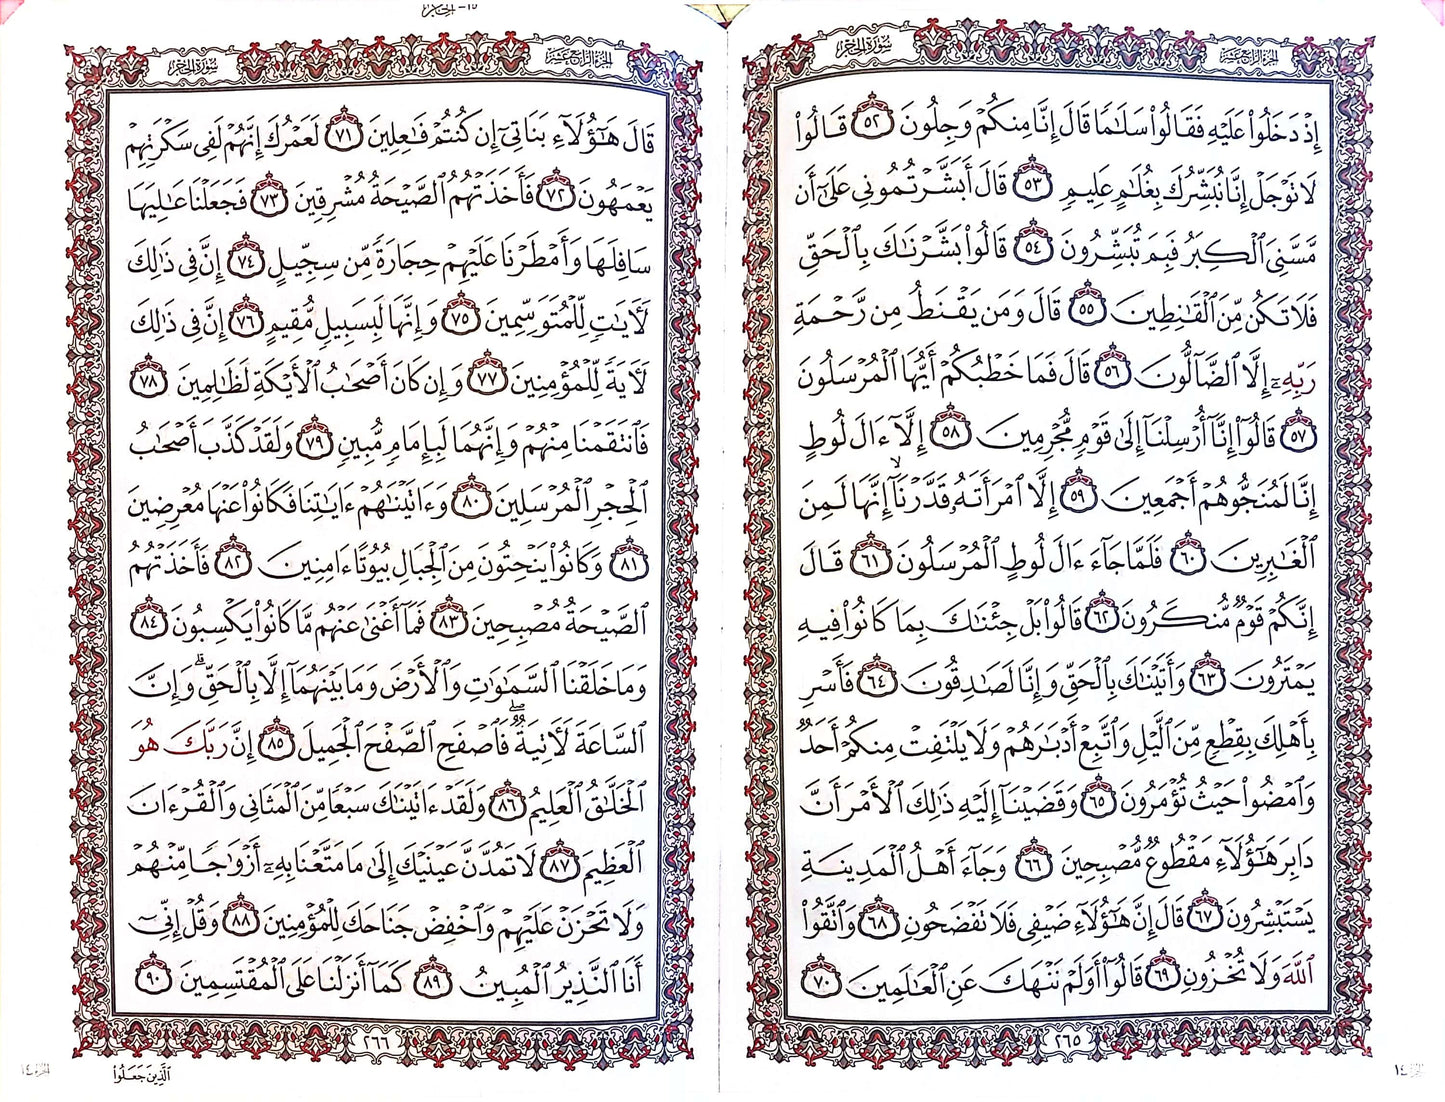 ١٥- الحجر
الجزء الرابع عشر
سورة الحجر
إِذْ دَخَلُوا۟ عَلَيْهِ فَقَالُوا۟ سَلَـٰمًا قَالَ إِنَّا مِنكُمْ وَجِلُونَ ٥٢ قَالُوا۟
لَا تَوْجَلْ إِنَّا نُبَشِّرُكَ بِغُلَـٰمٍ عَلِيمٍ ٥٣ قَالَ أَبَشَّرْتُمُونِى عَلَىٰٓ أَن
مَّسَّنِىَ ٱلْكِبَرُ فَبِمَ تُبَشِّرُونَ ٥٤ قَالُوا۟ بَشَّرْنَـٰكَ بِٱلْحَقِّ
فَلَا تَكُن مِّنَ ٱلْقَـٰنِطِينَ ٥٥ قَالَ وَمَن يَقْنَطُ مِن رَّحْمَةِ
رَبِّهِۦٓ إِلَّا ٱلضَّآلُّونَ ٥٦ قَالَ فَمَا خَطْبُكُمْ أَيُّهَا ٱلْمُرْسَلُونَ
٥٧ قَالُوٓا۟ إِنَّآ أُرْسِلْنَآ إِلَىٰ قَوْمٍ مُّجْرِمِينَ ٥٨ إِلَّآ ءَالَ لُوطٍ
إِنَّا لَمُنَجُّوهُمْ أَجْمَعِينَ ٥٩ إِلَّا ٱمْرَأَتَهُۥ قَدَّرْنَآ إِنَّهَا لَمِنَ
ٱلْغَـٰبِرِينَ ٦٠ فَلَمَّا جَآءَ ءَالَ لُوطٍ ٱلْمُرْسَلُونَ ٦١ قَالَ
إِنَّكُمْ قَوْمٌ مُّنكَرُونَ ٦٢ قَالُوا۟ بَلْ جِئْنَـٰكَ بِمَا كَانُوا۟ فِيهِ
يَمْتَرُونَ ٦٣ وَأَتَيْنَـٰكَ بِٱلْحَقِّ وَإِنَّا لَصَـٰدِقُونَ ٦٤ فَأَسْرِ
بِأَهْلِكَ بِقِطْعٍ مِّنَ ٱلَّيْلِ وَٱتَّبِعْ أَدْبَـٰرَهُمْ وَلَا يَلْتَفِتْ مِنكُمْ أَحَدٌ
وَٱمْضُوا۟ حَيْثُ تُؤْمَرُونَ ٦٥ وَقَضَيْنَآ إِلَيْهِ ذَٰلِكَ ٱلْأَمْرَ أَنَّ
دَابِرَ هَـٰٓؤُلَآءِ مَقْطُوعٌ مُّصْبِحِينَ ٦٦ وَجَآءَ أَهْلُ ٱلْمَدِينَةِ
يَسْتَبْشِرُونَ ٦٧ قَالَ إِنَّ هَـٰٓؤُلَآءِ ضَيْفِى فَلَا تَفْضَحُونِ ٦٨ وَٱتَّقُوا۟
ٱللَّهَ وَلَا تُخْزُونِ ٦٩ قَالُوٓا۟ أَوَلَمْ نَنْهَكَ عَنِ ٱلْعَـٰلَمِينَ ٧٠
٢٦٥
الجزء ١٤
الجزء الرابع عشر
سورة الحجر
قَالَ هَـٰٓؤُلَآءِ بَنَاتِىٓ إِن كُنتُمْ فَـٰعِلِينَ ٧١ لَعَمْرُكَ إِنَّهُمْ لَفِى سَكْرَتِهِمْ
يَعْمَهُونَ ٧٢ فَأَخَذَتْهُمُ ٱلصَّيْحَةُ مُشْرِقِينَ ٧٣ فَجَعَلْنَا عَـٰلِيَهَا
سَافِلَهَا وَأَمْطَرْنَا عَلَيْهِمْ حِجَارَةً مِّن سِجِّيلٍ ٧٤ إِنَّ فِى ذَٰلِكَ
لَـَٔايَـٰتٍ لِّلْمُتَوَسِّمِينَ ٧٥ وَإِنَّهَا لَبِسَبِيلٍ مُّقِيمٍ ٧٦ إِنَّ فِى ذَٰلِكَ
لَـَٔايَةً لِّلْمُؤْمِنِينَ ٧٧ وَإِن كَانَ أَصْحَـٰبُ ٱلْأَيْكَةِ لَظَـٰلِمِينَ ٧٨
فَٱنتَقَمْنَا مِنْهُمْ وَإِنَّهُمَا لَبِإِمَامٍ مُّبِينٍ ٧٩ وَلَقَدْ كَذَّبَ أَصْحَـٰبُ
ٱلْحِجْرِ ٱلْمُرْسَلِينَ ٨٠ وَءَاتَيْنَـٰهُمْ ءَايَـٰتِنَا فَكَانُوا۟ عَنْهَا مُعْرِضِينَ
٨١ وَكَانُوا۟ يَنْحِتُونَ مِنَ ٱلْجِبَالِ بُيُوتًا ءَامِنِينَ ٨٢ فَأَخَذَتْهُمُ
ٱلصَّيْحَةُ مُصْبِحِينَ ٨٣ فَمَآ أَغْنَىٰ عَنْهُم مَّا كَانُوا۟ يَكْسِبُونَ ٨٤
وَمَا خَلَقْنَا ٱلسَّمَـٰوَٰتِ وَٱلْأَرْضَ وَمَا بَيْنَهُمَآ إِلَّا بِٱلْحَقِّ ۗ وَإِنَّ
ٱلسَّاعَةَ لَـَٔاتِيَةٌ ۖ فَٱصْفَحِ ٱلصَّفْحَ ٱلْجَمِيلَ ٨٥ إِنَّ رَبَّكَ هُوَ
ٱلْخَلَّـٰقُ ٱلْعَلِيمُ ٨٦ وَلَقَدْ ءَاتَيْنَـٰكَ سَبْعًا مِّنَ ٱلْمَثَانِى وَٱلْقُرْءَانَ
ٱلْعَظِيمَ ٨٧ لَا تَمُدَّنَّ عَيْنَيْكَ إِلَىٰ مَا مَتَّعْنَا بِهِۦٓ أَزْوَٰجًا مِّنْهُمْ
وَلَا تَحْزَنْ عَلَيْهِمْ وَٱخْفِضْ جَنَاحَكَ لِلْمُؤْمِنِينَ ٨٨ وَقُلْ إِنِّىٓ
أَنَا ٱلنَّذِيرُ ٱلْمُبِينُ ٨٩ كَمَآ أَنزَلْنَا عَلَى ٱلْمُقْتَسِمِينَ ٩٠
٢٦٦
ٱلَّذِينَ جَعَلُوا۟
الجزء ١٤